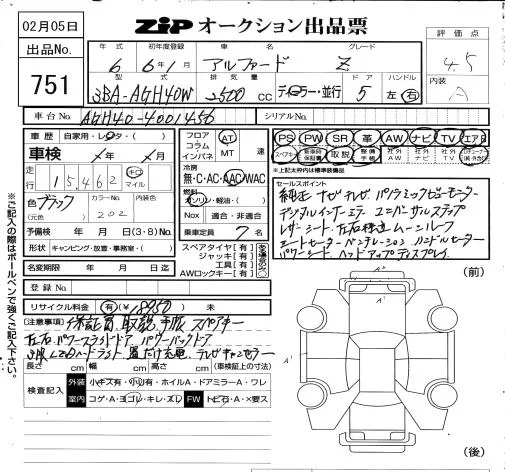 02月05日
出品No.
751
ZIP オークション出品票
年式 初年度登録 車名 グレード
6 6年1月 アルファード Z
型式 排気量 ドア ハンドル
3BA-AGH40W 2500cc ディーラー・並行 5 左 右
評価点
4.5
内装
A
車台No. AGH40-4001456 シリアルNo.
車歴 自家用・レンタ・( )
車検 年 月 日
走行 15,462 キロ マイル
色 ブラック カラーNo. 202 内装色
(元色)
予備検 年 月 日 (3・8) No.
形状 キャンピング・放置・事務室・( )
名変期限 年 月 日迄
登録No.
リサイクル料金 有(¥ 8950) 未
フロア コラム インパネ AT MT 速
冷房
無・C・AC・AAC・WAC
燃料
ガソリン・軽油・( )
Nox 適合・非適合
乗車定員 7名
スペアタイヤ【有】
ジャッキ【有】
工具【有】
AWロックキー【有】
PS PW SR 革 AW ナビ TV エアB
スペアキー 新車時保証書 取説 整備手帳 社外AW 社外ナビ 社外TV
※上記太枠内は標準装備品
セールスポイント
純正ナビテレビ パノラミックビューモニター
デジタルインナーミラー ユニバーサルステップ
レザーシート 左右独立ムーンルーフ
シートヒーター ベンチレーション ハンドルヒーター
パワーシート ヘッドアップディスプレイ
(注意事項) 保証書 取説 手帳 スペアキー
左右パワースライドドア パワーバックドア
3眼LEDヘッドライト 置だけ充電 テレビキャンセラー
長さ cm 幅 cm 高さ cm (車検証上の寸法)
検査記入 外装 小キズ有・小凹有・ホイルA・ドアミラーA・ワレ
室内 コゲA・ヨゴレ・キレ・スレ FW トビ石A・×要ス
※ご記入の際はボールペンで強くご記入下さい。
(前)
A²
A'
A'
(後)